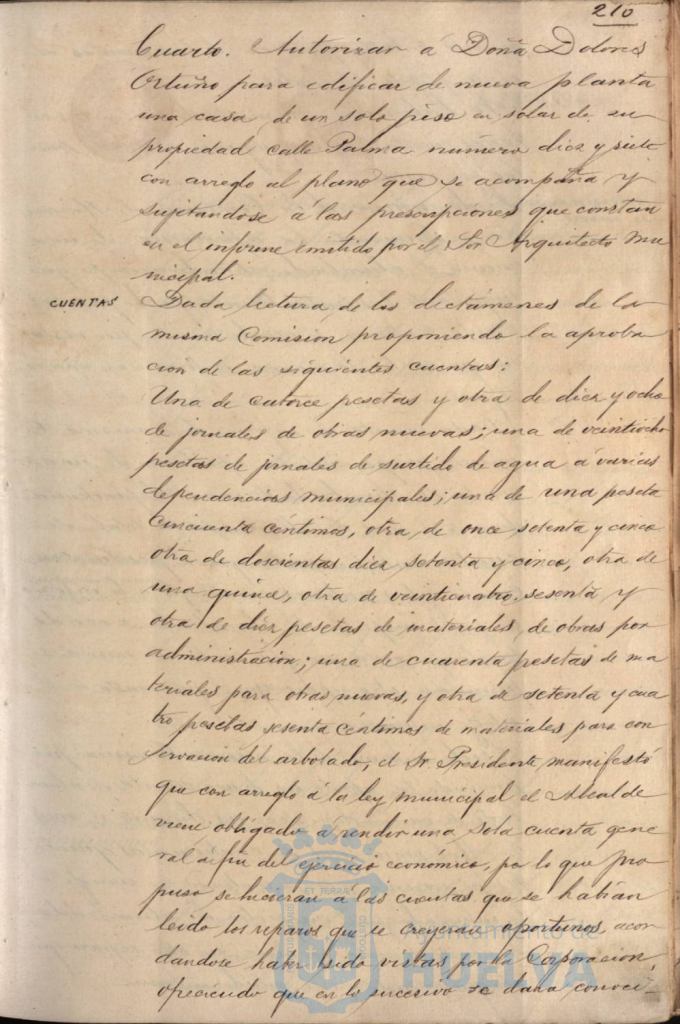 210
Cuarto. Autorizar á Doña Dolores
Ortuño para edificar de nueva planta
una casa de un solo piso en solar de su
propiedad calle Palma número diez y siete
con arreglo al plano que se acompaña y
sujetandose á las prescripciones que constan
en el informe emitido por el Sor Arquitecto Mu
nicipal.
CUENTAS
Dada lectura de los dictámenes de la
misma Comision proponiendo la aproba
cion de las siguientes cuentas:
Una de catorce pesetas y otra de diez y ocho
de jornales de obras nuevas; una de veintiocho
pesetas de jornales de surtido de agua á varias
dependencias municipales; una de una peseta
cincuenta céntimos, otra de once setenta y cinco
otra de doscientas diez setenta y cinco, otra de
una quince, otra de veinticuatro sesenta y
otra de diez pesetas de materiales de obras por
administracion; una de cuarenta pesetas de ma
teriales para obras nuevas, y otra de setenta y cua
tro pesetas sesenta céntimos de materiales para con
servacion del arbolado, el Sr. Presidente manifestó
que con arreglo á la ley municipal el Alcalde
viene obligado á rendir una sola cuenta gene
ral á fin del ejercicio económico, por lo que pro
puso se hicieran á las cuentas que se habían
leido los reparos que se creyeran oportunos, acor
dandose haber sido vistas por la Corporacion,
ofreciendo que en lo sucesivo se dara conoci
Ayuntamiento de
HUELVA